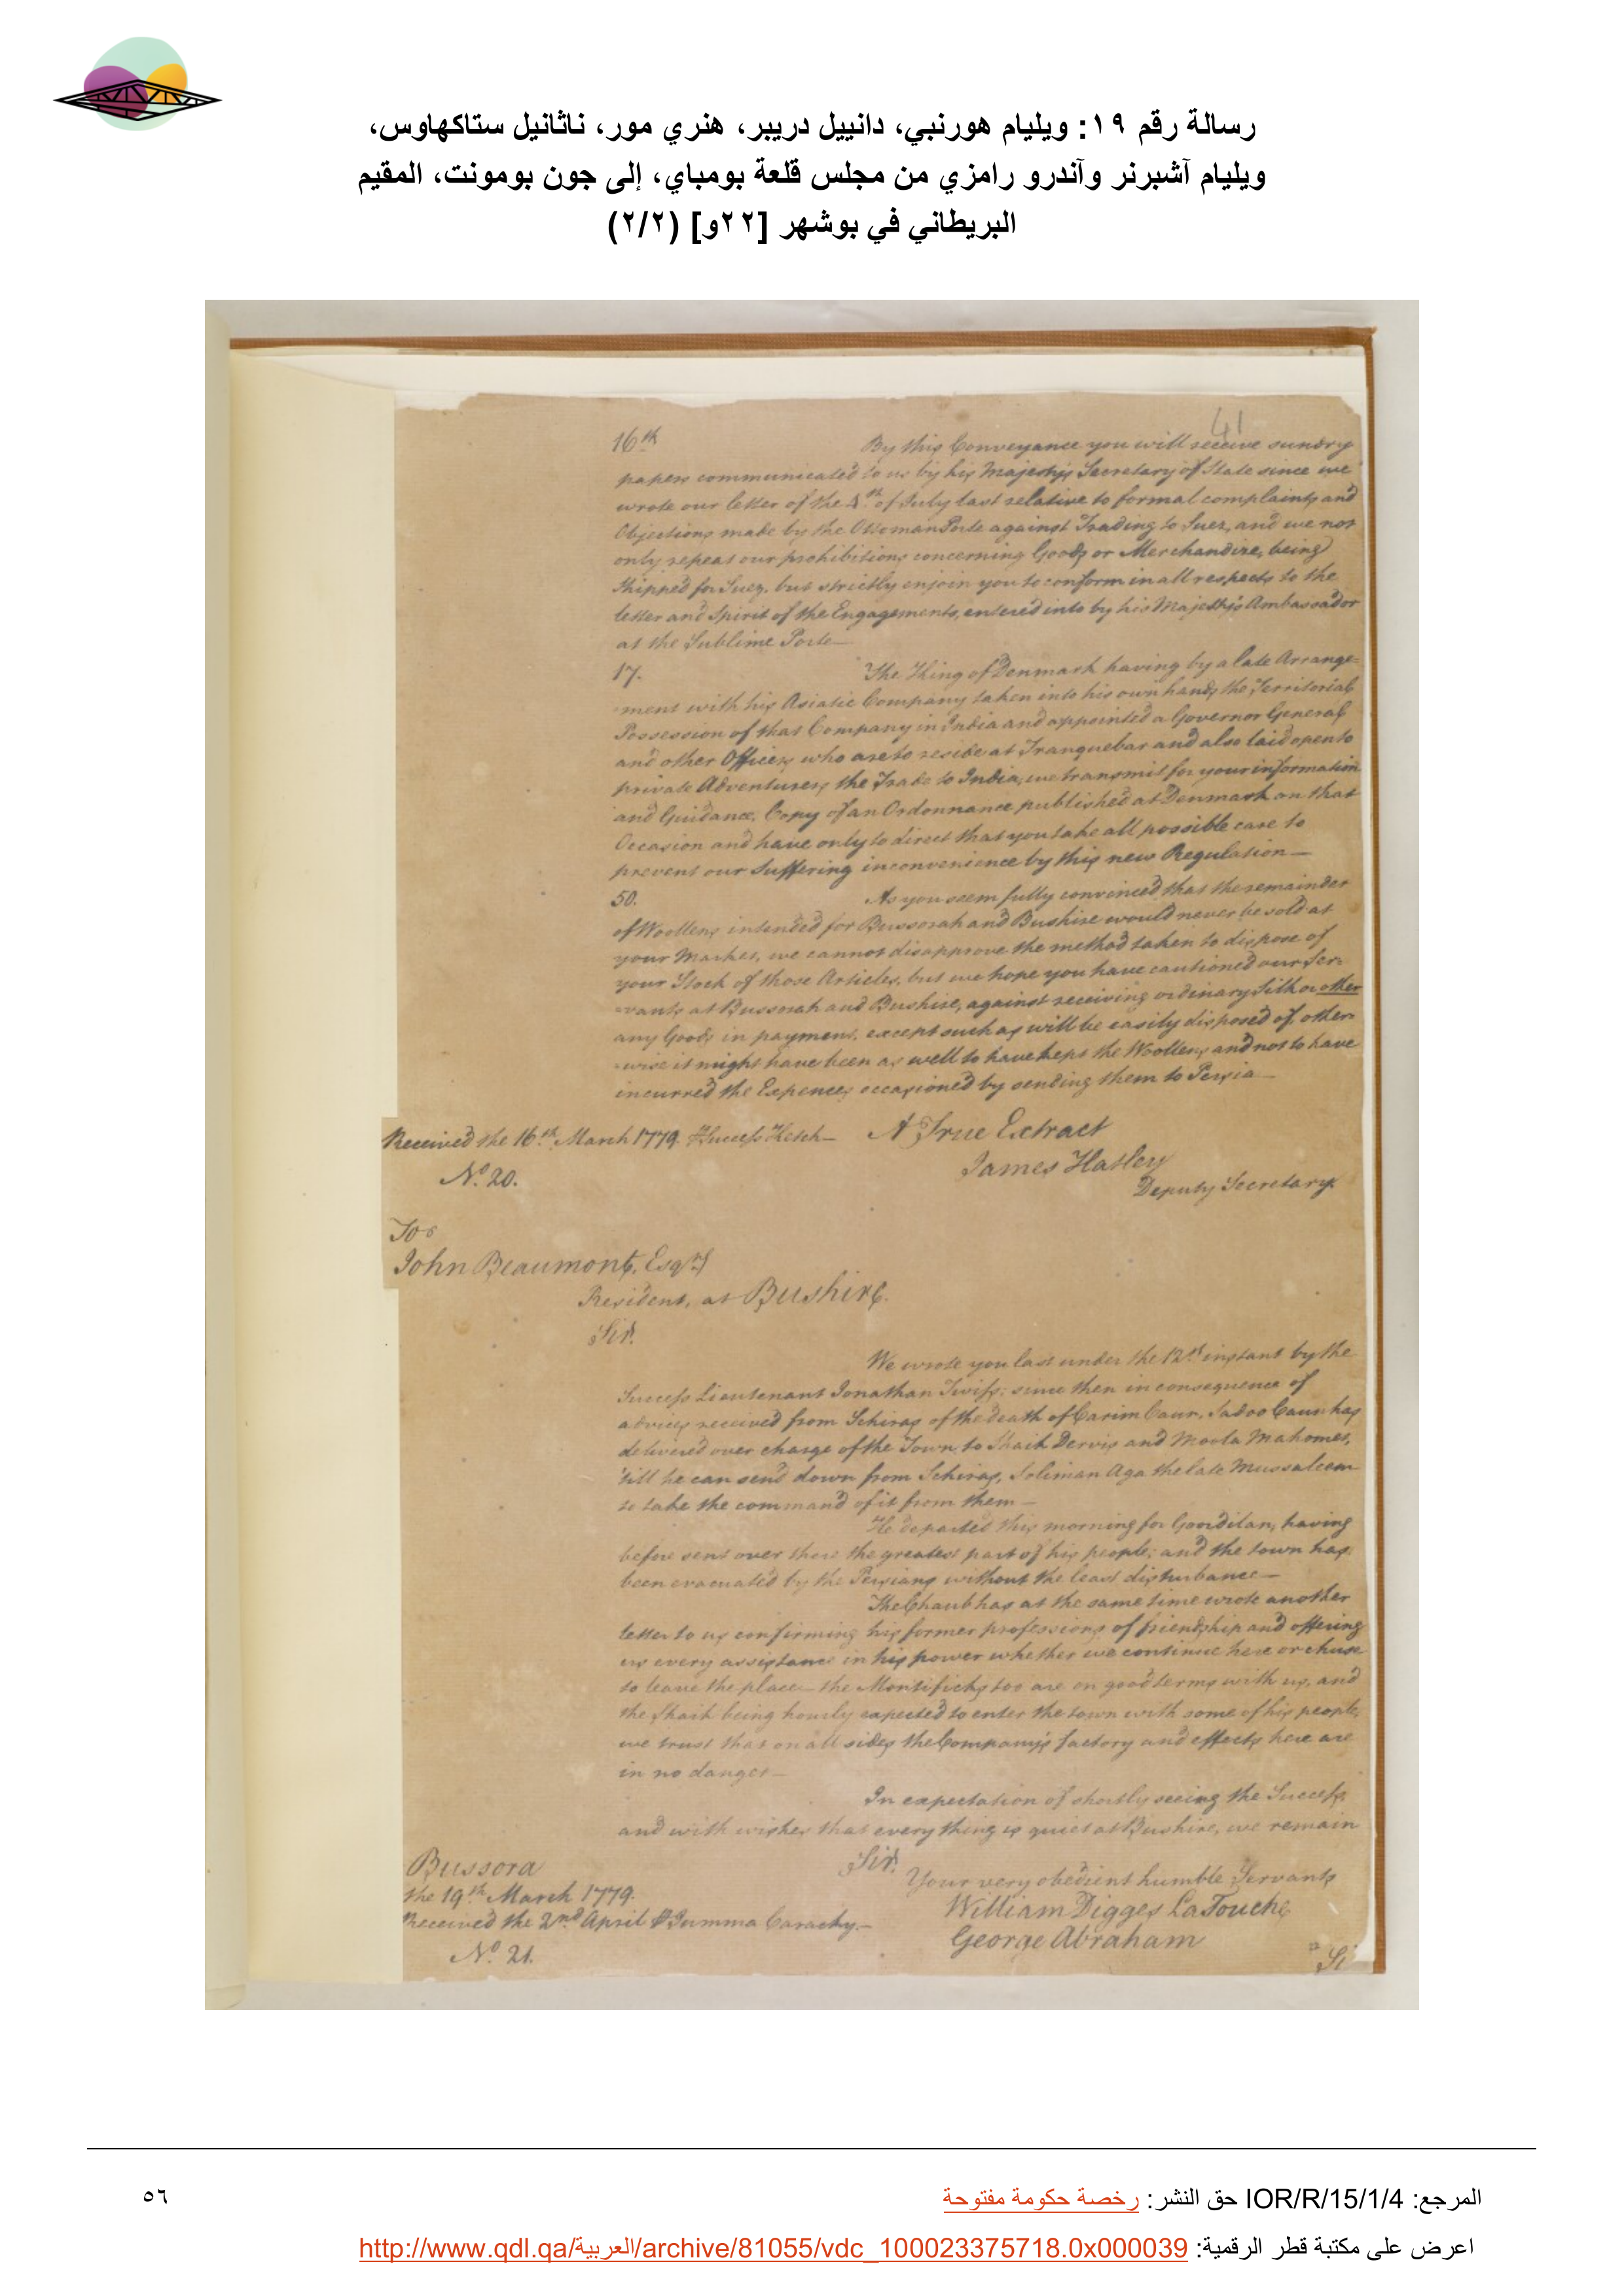 رسالة رقم ١٩: ويليام هورنبي، دانييل دريبر، هنري مور، ناثانيل ستاكهاوس،
ويليام آشبرنر وآندرو رامزي من مجلس قلعة بومباي، إلى جون بومونت، المقيم
البريطاني في بوشهر [٢٢و] (٢/٢)
41
16th By this Conveyance you will receive sundry
papers communicated to us by his Majesty's Secretary of State since we
wrote our letter of the 4th of July last relative to formal complaints and
Objections made by the Ottoman Porte against Trading to Suez, and we not
only repeat our prohibitions concerning Goods or Merchandize, being
Shipped for Suez, but strictly enjoin you to conform in all respects to the
letter and Spirit of the Engagements, entered into by his Majesty's Ambassador
at the Sublime Porte—
17. The King of Denmark having by a late Arrange=
-ment with his Asiatic Company taken into his own hands the Territorial
Possession of that Company in India and appointed a Governor General
and other Officers who are to reside at Tranquebar and also laid open to
private Adventurers the Trade to India, we transmit for your information
and Guidance, Copy of an Ordonnance published at Denmark on that
Occasion and have only to direct that you take all possible care to
prevent our Suffering inconvenience by this new Regulation—
50. As you seem fully convinced that the remainder
of Woollens intended for Bussorah and Bushire would never be sold at
your Market, we cannot disapprove the method taken to dispose of
your Stock of those Articles, but we hope you have cautioned our Ser=
-vants at Bussorah and Bushire, against receiving ordinary Silk or other
any Goods in payment, except such as will be easily disposed of, other=
-wise it might have been as well to have kept the Woollens and not to have
incurred the Expences occasioned by sending them to Persia—
Received the 16th March 1779. Success Ketch— A True Extract
No. 20. James Hatley
Deputy Secretary.
To
John Beaumont, Esqr.
Resident, at Bushire.
Sir.
We wrote you last under the 12th instant by the
Success Lieutenant Jonathan Twiss; since then in consequence of
advices received from Schiras of the death of Carim Caun, Sadoo Caun has
delivered over charge of the Town to Shaik Dervis and Moola Mahomet,
'till he can send down from Schiras, Soliman Aga the late Mussaleem
to take the command of it from them—
He departed this morning for Goordilan, having
before sent over there the greatest part of his people; and the town has
been evacuated by the Persians without the least disturbance—
The Chaub has at the same time wrote another
letter to us confirming his former professions of friendship and offering
us every assistance in his power whether we continue here or chuse
to leave the place— the Montificks too are on good terms with us, and
the Shaik being hourly expected to enter the town with some of his people,
we trust that on all sides the Company's factory and effects here are
in no danger—
In expectation of shortly seeing the Success,
and with wishes that every thing is quiet at Bushire, we remain
Bussora Sir.
the 19th March 1779. Your very obedient humble Servants
Received the 2nd April Summa Carachy.— William Digges LaTouche
No. 21. George Abraham
Si
المرجع: IOR/R/15/1/4 حق النشر: رخصة حكومة مفتوحة
٥٦
اعرض على مكتبة قطر الرقمية: http://www.qdl.qa/العربية/archive/81055/vdc_100023375718.0x000039